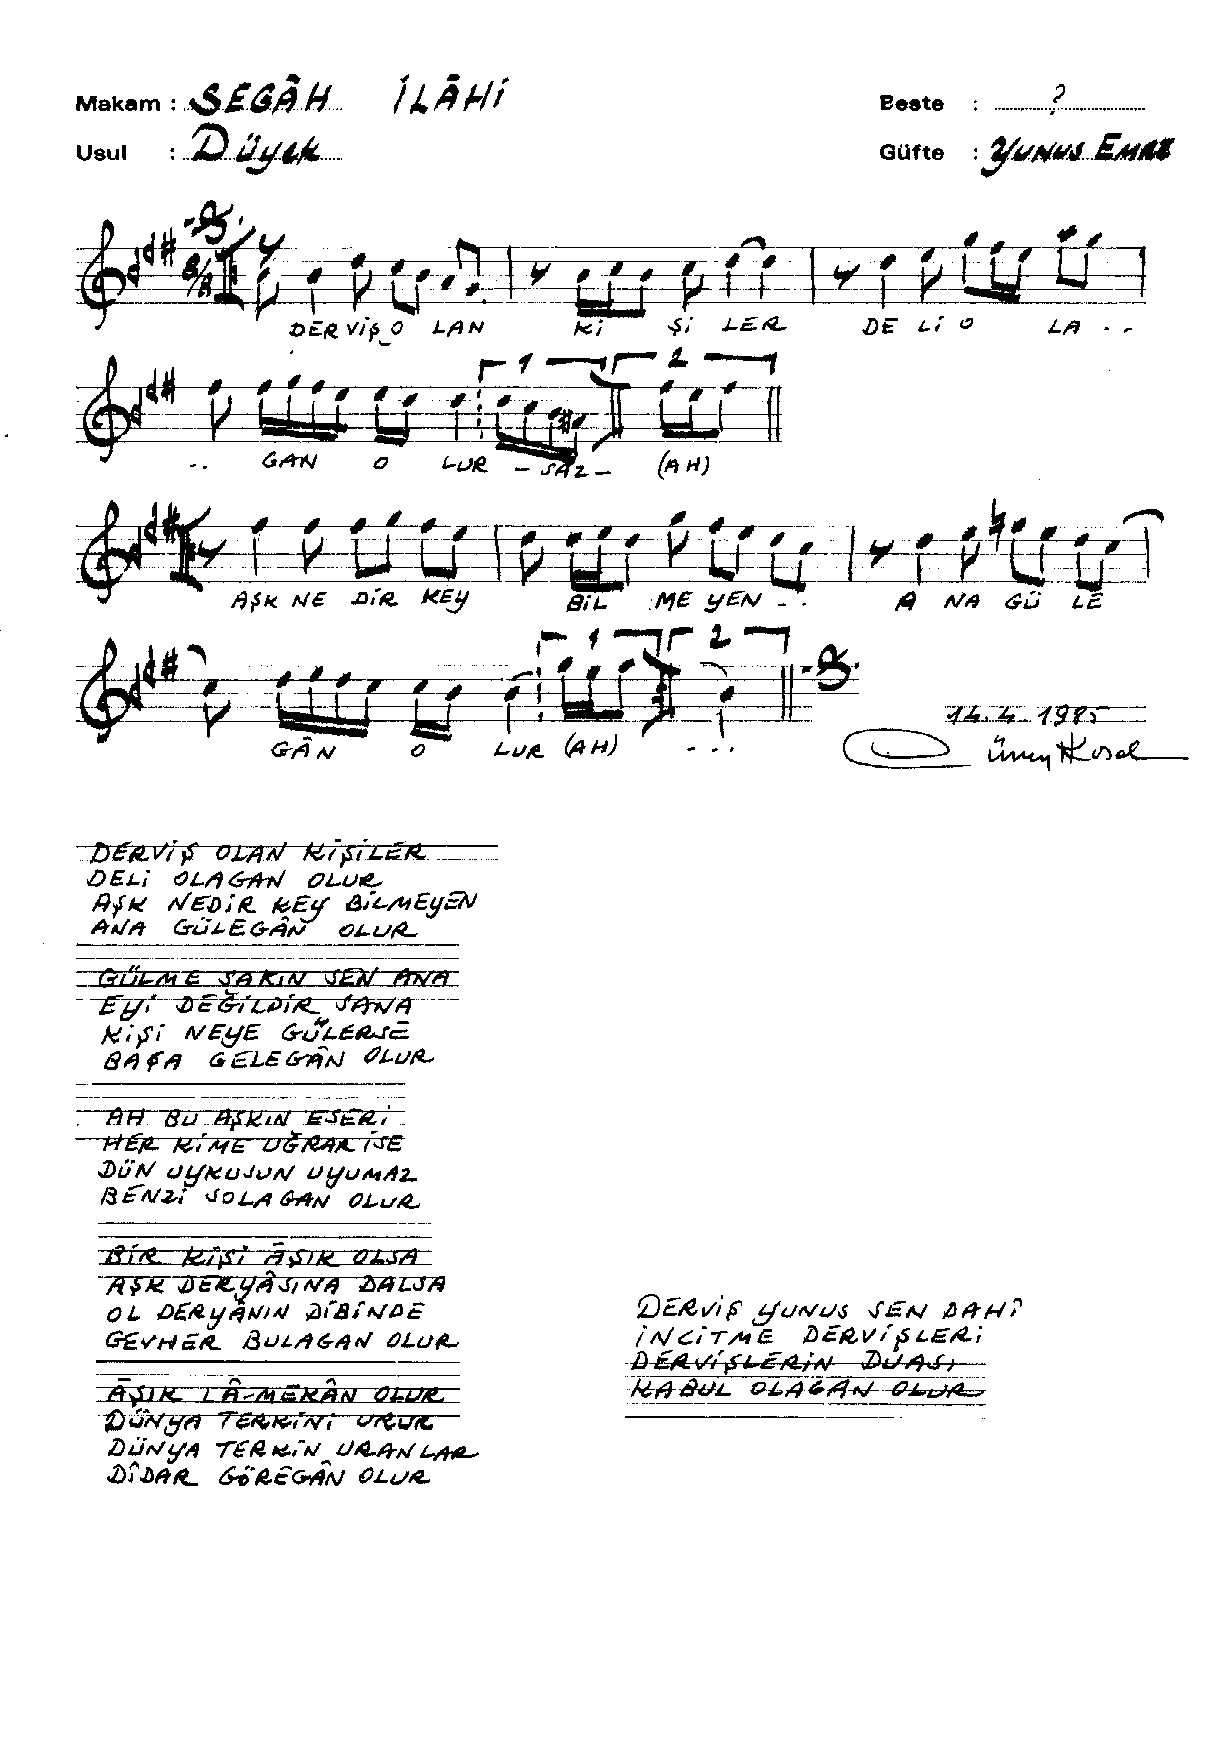 Makam : SEGÂH İLÂHİ
Beste : ?
Usul : Düyek
Güfte : YUNUS EMRE
8/8
DERVİŞ O LAN Kİ Şİ LER DE Lİ O LA . .
1 2
. . GAN O LUR - SAZ - (AH)
AŞK NE DİR KEY BİL ME YEN - . . A NA GÜ LE
1 2
GÂN O LUR (AH) . . .
14.4.1985
DERVİŞ OLAN KİŞİLER
DELİ OLAGAN OLUR
AŞK NEDİR KEY BİLMEYEN
ANA GÜLEGÂN OLUR
GÜLME SAKIN SEN ANA
EYİ DEĞİLDİR SANA
KİŞİ NEYE GÜLERSE
BAŞA GELEGÂN OLUR
AH BU AŞKIN ESERİ
HER KİME UĞRAR İSE
DÜN UYKUSUN UYUMAZ
BENZİ SOLAGAN OLUR
BİR KİŞİ ÂŞIK OLSA
AŞK DERYÂSINA DALSA
OL DERYÂNIN DİBİNDE
GEVHER BULAGAN OLUR
ÂŞIK LÂ-MEKÂN OLUR
DÜNYA TERKİNİ URUR
DÜNYA TERKİN URANLAR
DÎDAR GÖREGÂN OLUR
DERVİŞ YUNUS SEN DAHÎ
İNCİTME DERVİŞLERİ
DERVİŞLERİN DUASI
KABUL OLAGAN OLUR